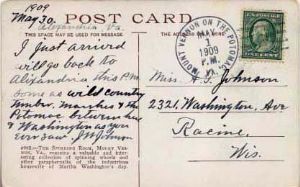 1909
May 30, Alexandria, Va.
POST CARD
THIS SPACE MAY BE USED FOR MESSAGE.
I just arrived
will go back to
Alexandria this PM
some as wild country
timber, marshes & the
Potomac between here
& Washington as you
ever saw. J.
MOUNT VERNON ON THE POTOMAC
MAY
1909
P.M.
VA.
Miss W. S. Johnson
2321, Washington, Ave
Racine,
Wis.
THE SPINNING ROOM, MOUNT VER-
NON, VA., contains a valuable and inter-
esting collection of spinning wheels and
other paraphernalia of the industrious
household of Martha Washington's day.